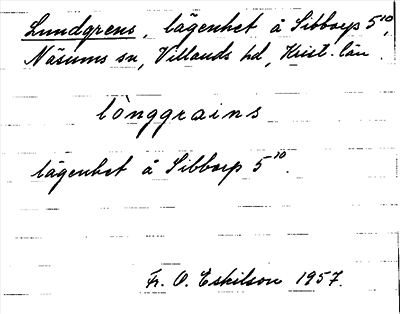 Lundgrens, lägenhet å Sibbarp 5¹⁰,
Näsums sn, Villands hd, Krist. län.
lònggrains
lägenhet å Sibbarp 5¹⁰.
Fr. O. Eskilson 1957.